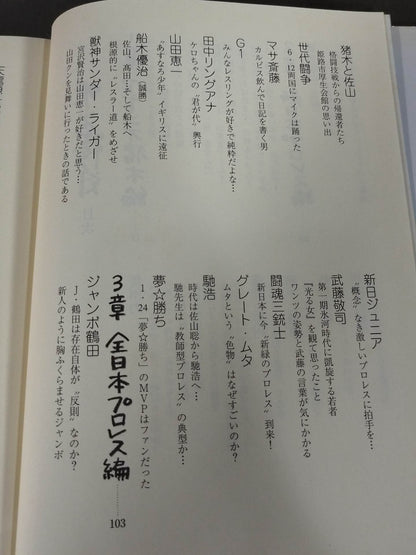 猪木と佐山
格闘技戦からの帰還者たち
姫路市厚生会館の思い出
世代闘争
6・12両国にマイクは踊った
マサ斎藤
カルピス飲んで日記を書く男
G1
みんなレスリングが好きで純粋だよな…
田中リングアナ
ケロちゃんの“君が代”興行
山田恵一
“あすなろ少年”イギリスに遠征
船木優治(誠勝)
佐山、高田、そして船木へ
根源的に“レスラー道”をめざせ
獣神サンダー・ライガー
宮沢賢治は山田恵一が好きだと思う…
山田クンを見舞いに行ったときの話である
新日ジュニア
“概念”なき激しいプロレスに拍手を…
武藤敬司
第一期氷河時代に凱旋する若者
『光る女』を観て思ったこと
ワンツの姿勢と武藤の言葉が気にかかる
闘魂三銃士
新日本に今“新緑のプロレス”到来!
グレート・ムタ
ムタという“色物”はなぜすごいのか?
馳浩
時代は佐山聡から馳浩へ…
馳先生は“教師型プロレス”の典型か…
夢☆勝ち
1・24「夢☆勝ち」のMVPはファンだった
3章 全日本プロレス編 ……… 103
ジャンボ鶴田
J・鶴田は存在自体が“反則”なのか?
新人のように胸ふくらませるジャンボ